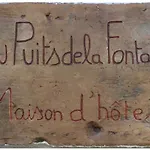 u Puits de la Fonta
Maison d'hôte